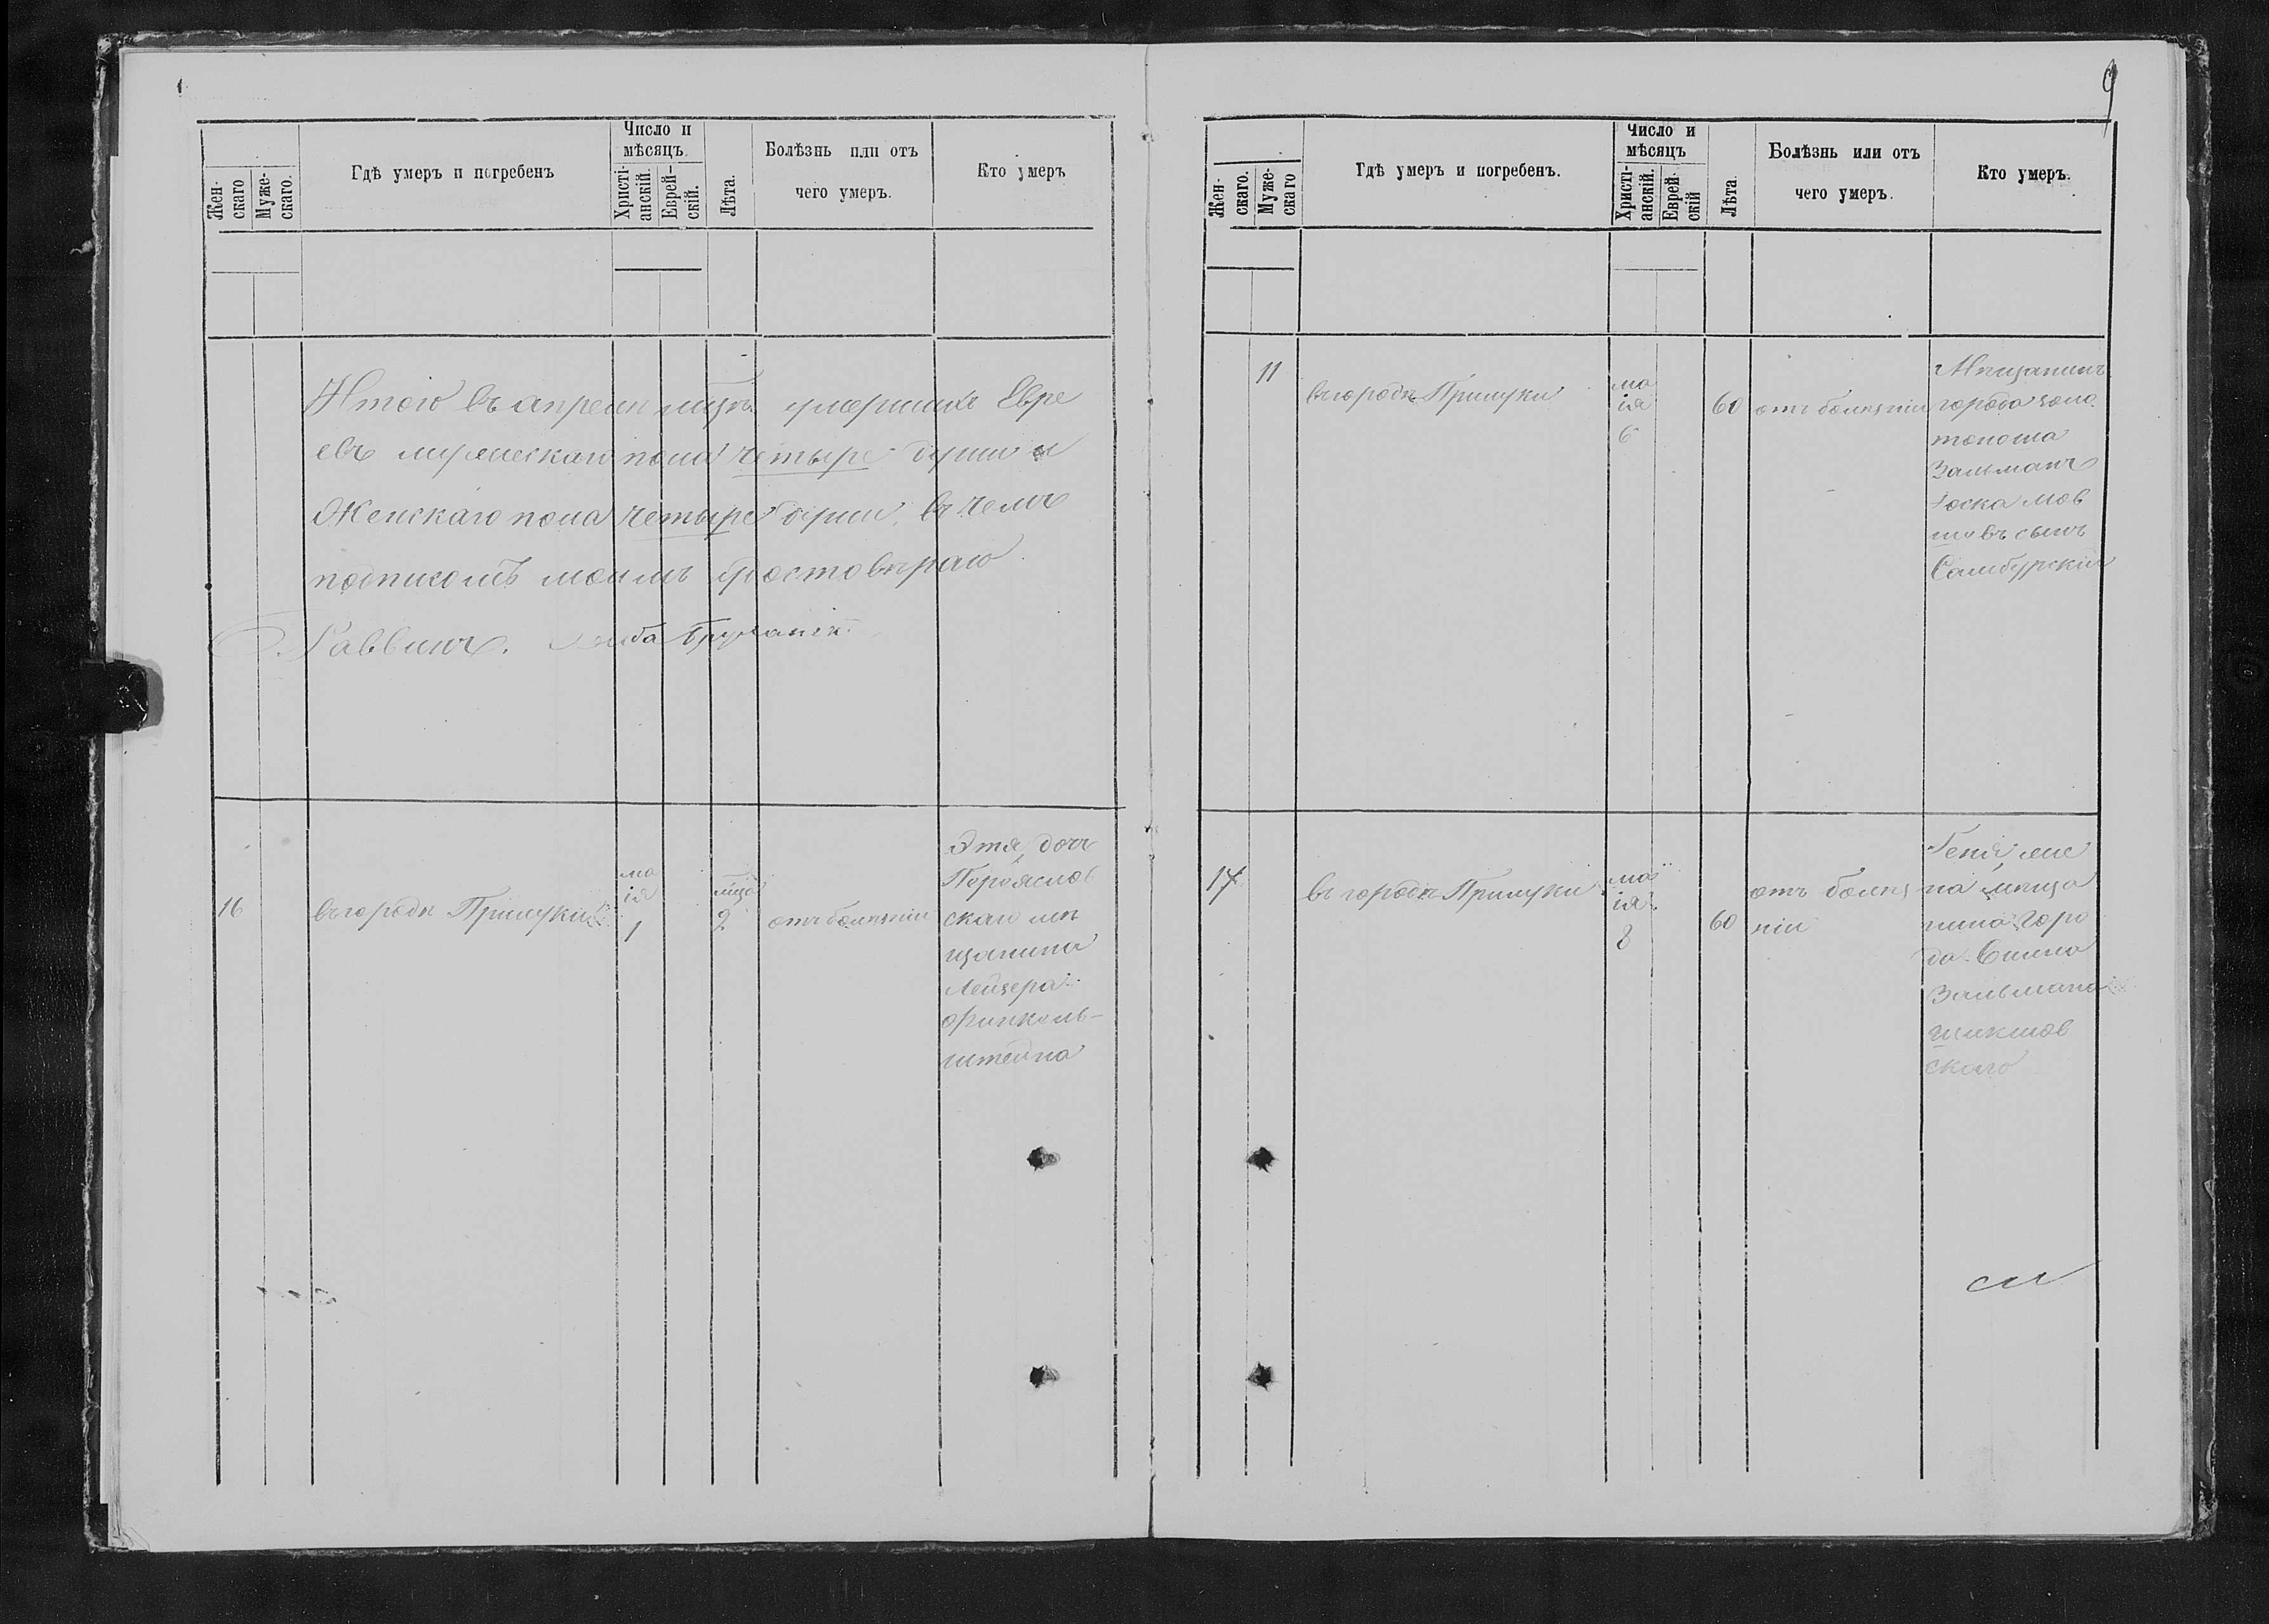 9
Жен-
скаго
Муже-
скаго.
Гдѣ умеръ и погребенъ
Число и
мѣсяцъ.
Христі-
анскій.
Еврей-
скій.
Лѣта.
Болѣзнь или отъ
чего умеръ.
Кто умеръ
Итого въ апрелѣ умершихъ Евре
евъ мужескаго пола четыре души и
Женскаго пола четыре души, въ чемъ
подписомъ моимъ
Раввинъ.
16
въ городѣ Прилуки
ма
ія
1
мѣця
2
отъ болѣзни
Этя дочь
Переяслов
скаго мѣ
щанина
Лейзера
Финкель-
штейна
Жен-
скаго.
Муже-
скаго
Гдѣ умеръ и погребенъ.
Число и
мѣсяцъ
Христі-
анскій.
Еврей-
скій
Лѣта.
Болѣзнь или отъ
чего умеръ.
Кто умеръ.
11
въ городѣ Прилуки
ма
ія
6
60
отъ болѣзни
Мѣщанинъ
города Золо
тоноша
Зальманъ
Іоска мов
шовъ сынъ
Самбурскій
17
въ городѣ Прилуки
ма
ія
8
60
отъ болѣз
ніи
Геня же
на мѣща
нина горо
да
Зальмана
скаго